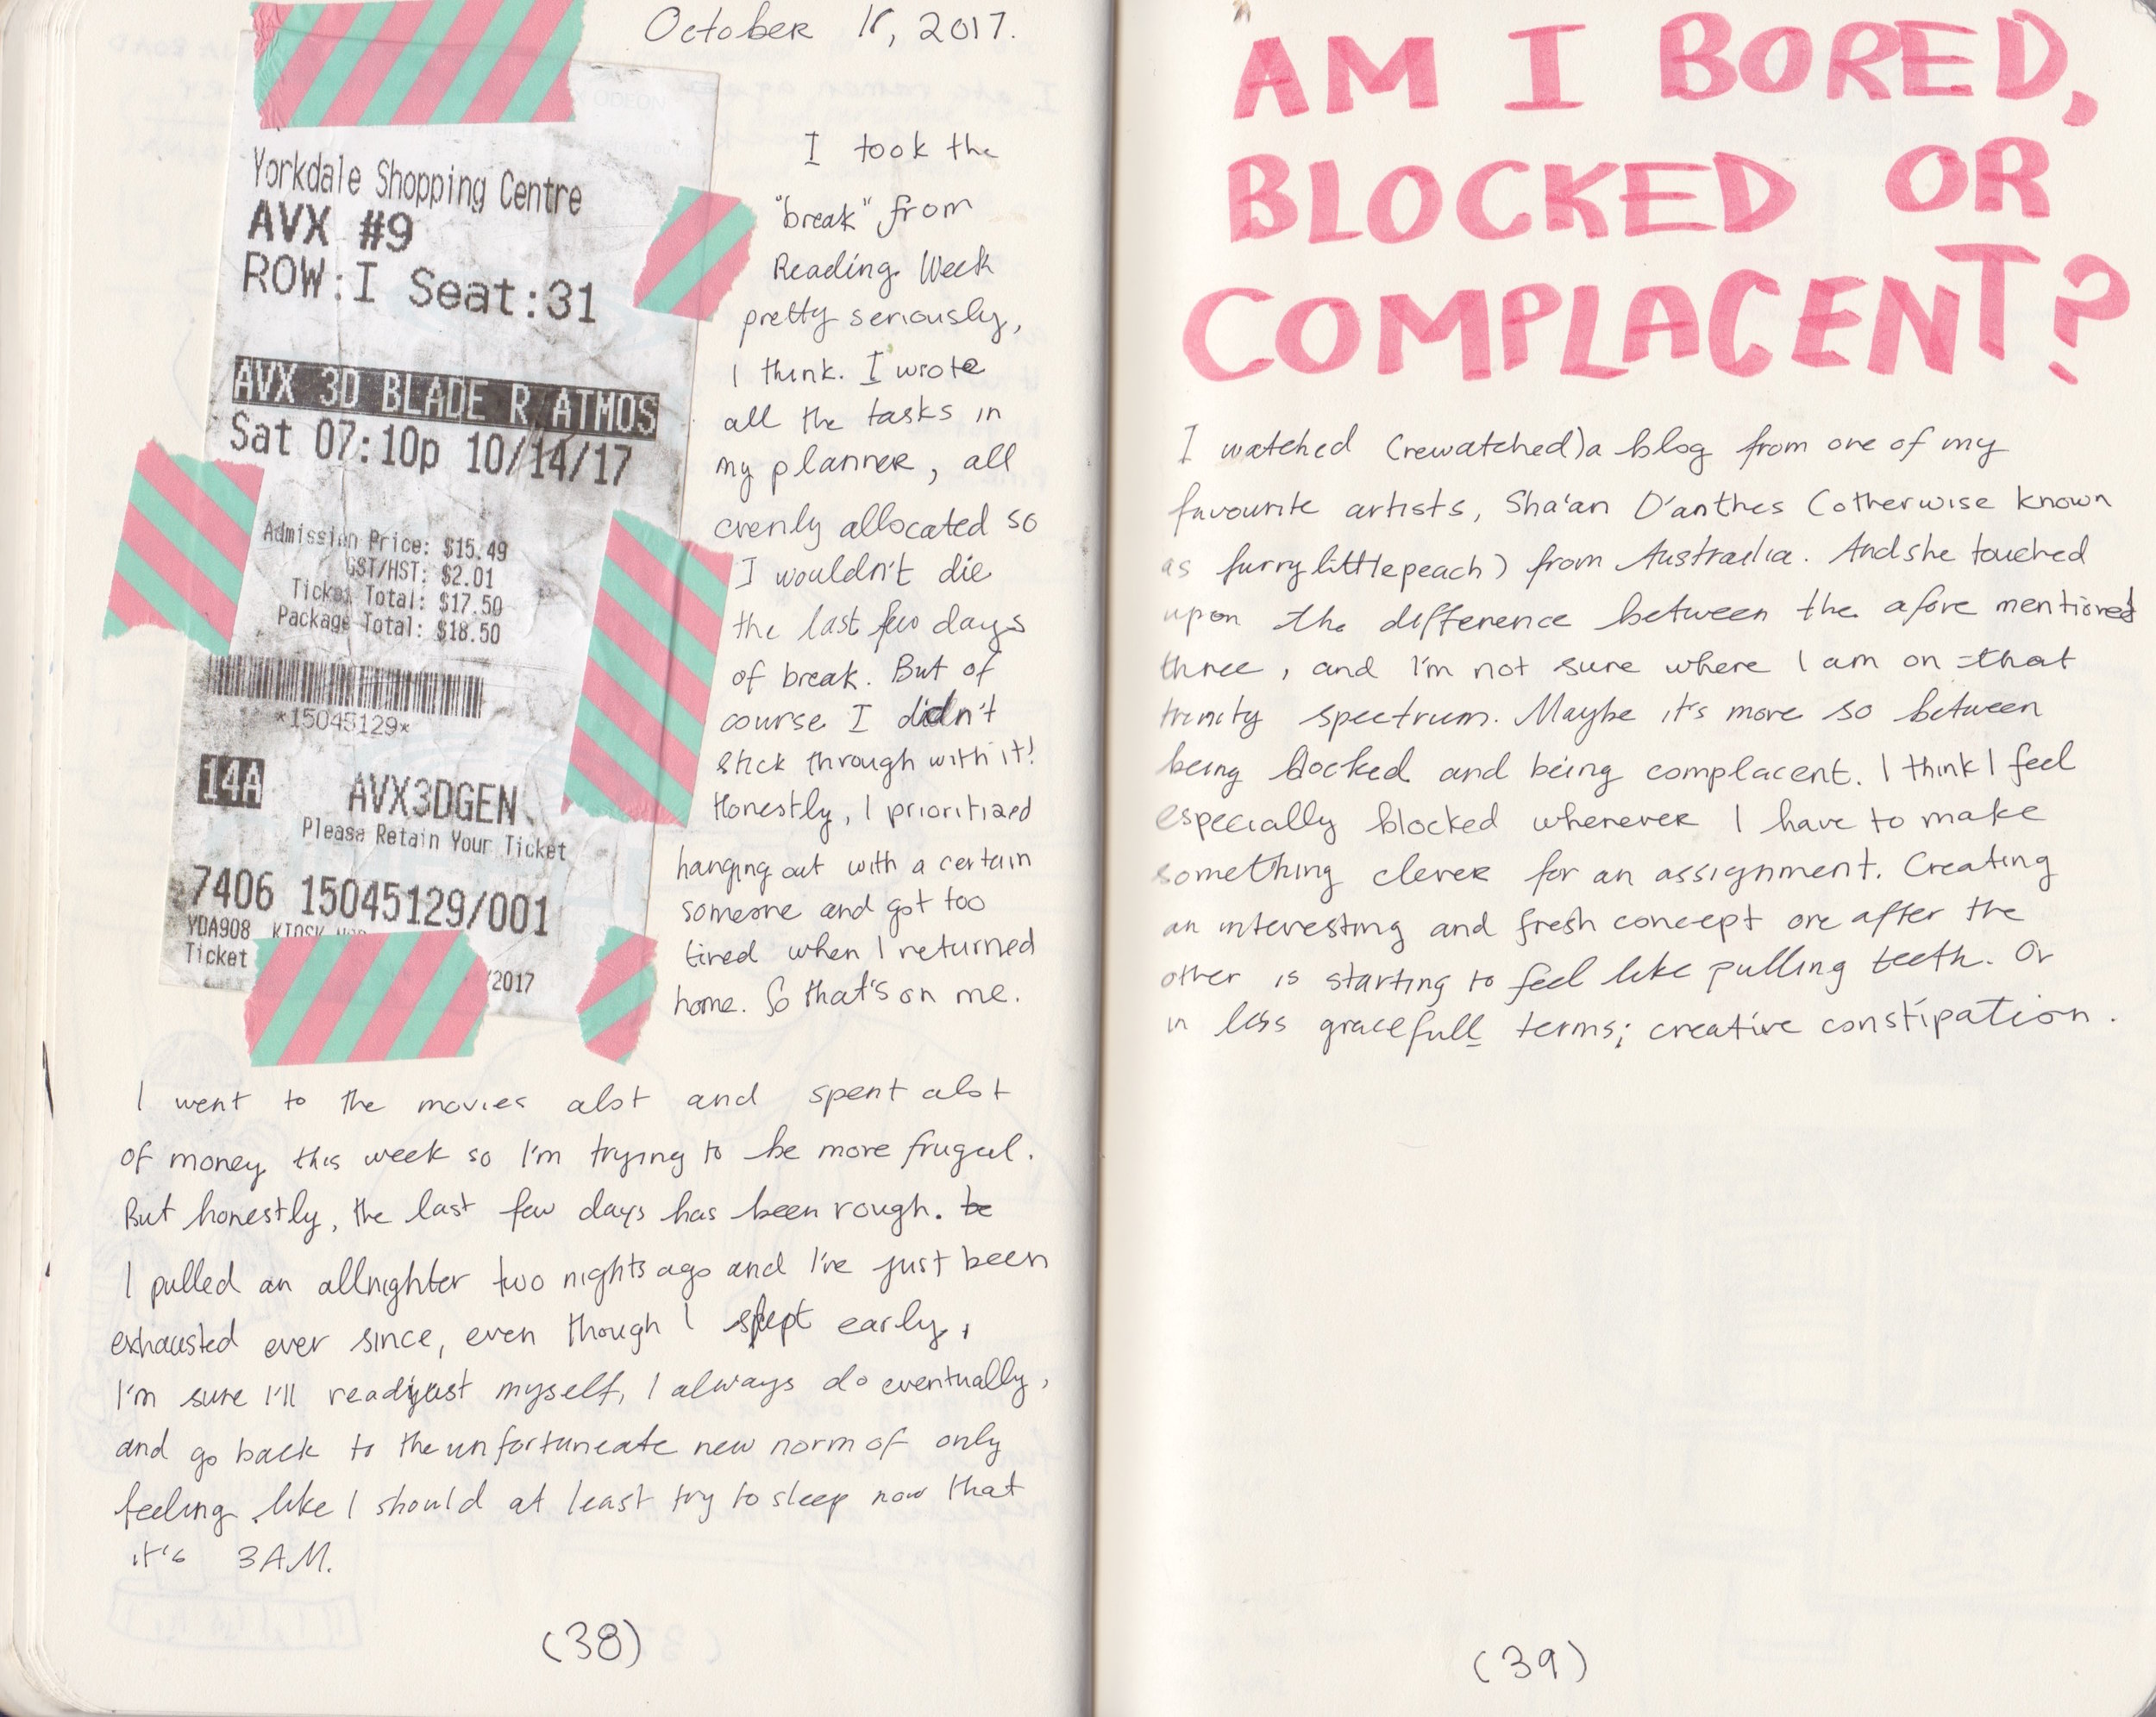 October 18, 2017.
ODEON
Yorkdale Shopping Centre
AVX #9
ROW:I Seat:31
AVX 3D BLADE R ATMOS
Sat 07:10p 10/14/17
Admission Price: $15.49
GST/HST: $2.01
Ticket Total: $17.50
Package Total: $18.50
*15045129*
14A
AVX3DGEN
Please Retain Your Ticket
7406 15045129/001
YDA908 KIOSK
Ticket /2017
I took the
"break" from
Reading Week
pretty seriously,
I think. I wrote
all the tasks in
my planner, all
evenly allocated so
I wouldn't die
the last few days
of break. But of
course I didn't
stick through with it!
Honestly, I prioritized
hanging out with a certain
someone and got too
tired when I returned
home. So that's on me.
I went to the movies alot and spent alot
of money this week so I'm trying to be more frugal.
But honestly, the last few days has been rough. be
I pulled an allnighter two nights ago and I've just been
exhausted ever since, even though I slept early,
I'm sure I'll readjust myself, I always do eventually,
and go back to the unfortuneate new norm of only
feeling like I should at least try to sleep now that
it's 3AM.
(38)
AM I BORED,
BLOCKED OR
COMPLACENT?
I watched (rewatched) a blog from one of my
favourite artists, Sha'an D'anthes (otherwise known
as furrylittlepeach) from Australia. And she touched
upon the difference between the afore mentioned
three, and I'm not sure where I am on that
trinity spectrum. Maybe it's more so between
being blocked and being complacent. I think I feel
especially blocked whenever I have to make
something clever for an assignment. Creating
an interesting and fresh concept one after the
other is starting to feel like pulling teeth. Or
in less gracefull terms; creative constipation.
(39)